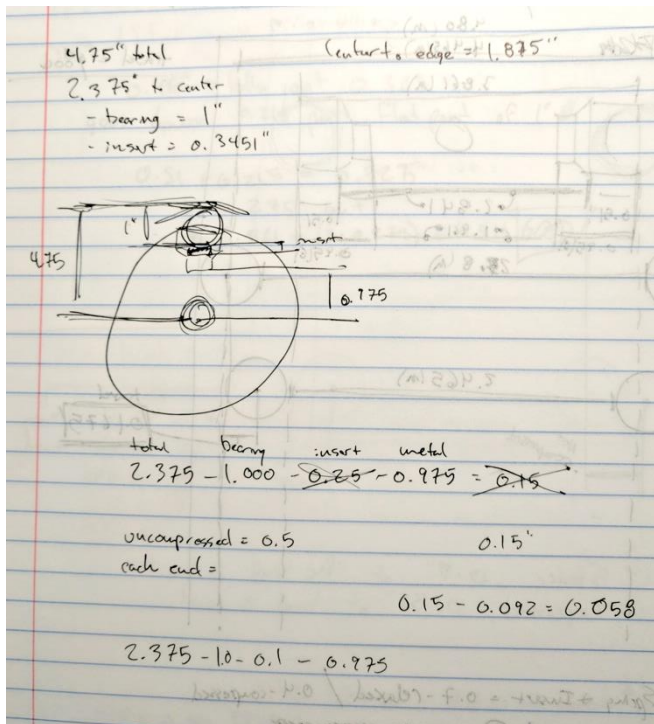 4.75" total
Center to edge = 1.875"
2.375" to center
- bearing = 1"
- insert = 0.3451"
1"
insrt
4.75
0.975
total bearing insert metal
2.375 - 1.000 - 0.25 - 0.975 = 0.15
uncompressed = 0.5
0.15"
each end =
0.15 - 0.092 = 0.058
2.375 - 1.0 - 0.1 - 0.975